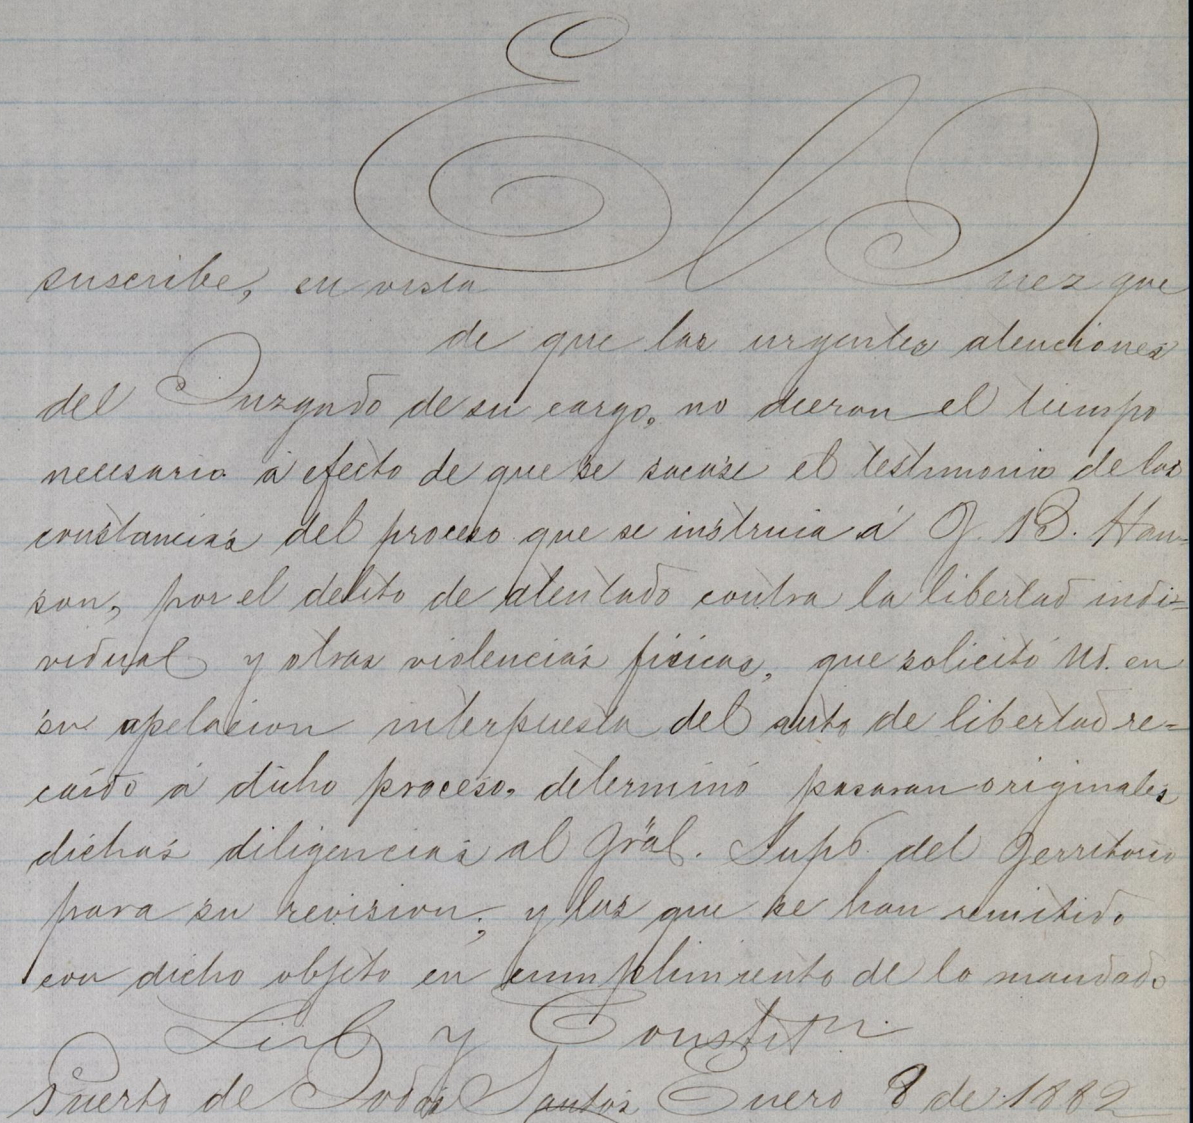 El Juez que
suscribe, en vista
de que las urgentes atenciones
del Juzgado de su cargo, no dieran el tiempo
necesario á efecto de que se sacase el testimonio de las
constancias del proceso que se instruia á J. B. Han-
son, por el delito de atentado contra la libertad indi=
vidual y otras violencias físicas, que solicitó Ud. en
su apelacion interpuesta del auto de libertad re=
caido á dicho proceso, determinó pasaran originales
dichas diligencias al Gral. Supr. del Territorio
para su revision; y las que se han remitido
con dicho objeto en cumplimiento de lo mandado
Lib y Constitn.
Puerto de Todos Santos Enero 8 de 1882